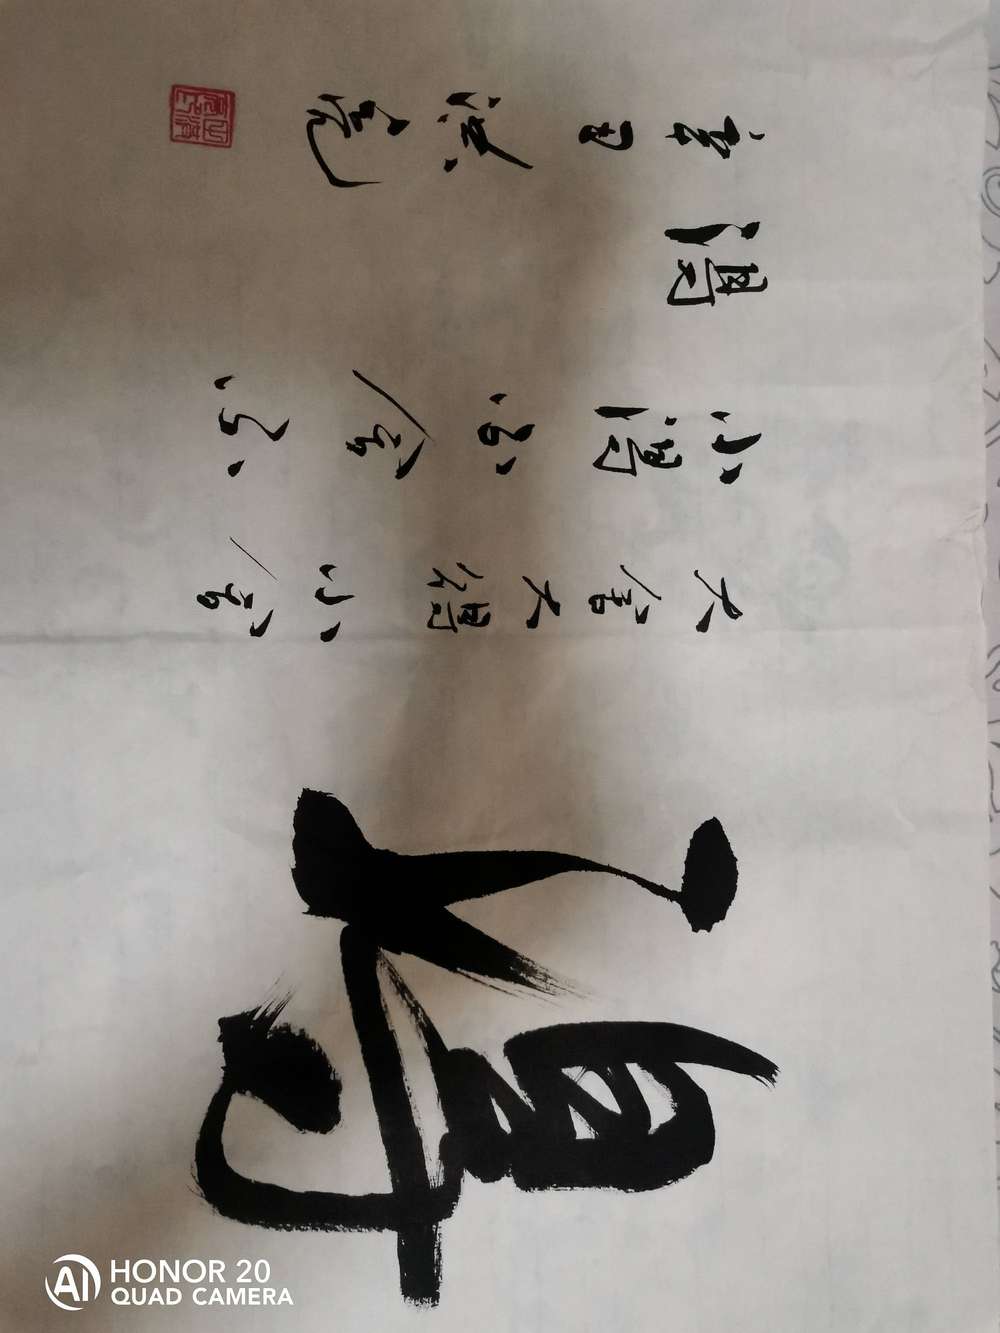 得
大舍大得小舍
小得不舍不
得
辛丑洪亮
HONOR 20
QUAD CAMERA
AI